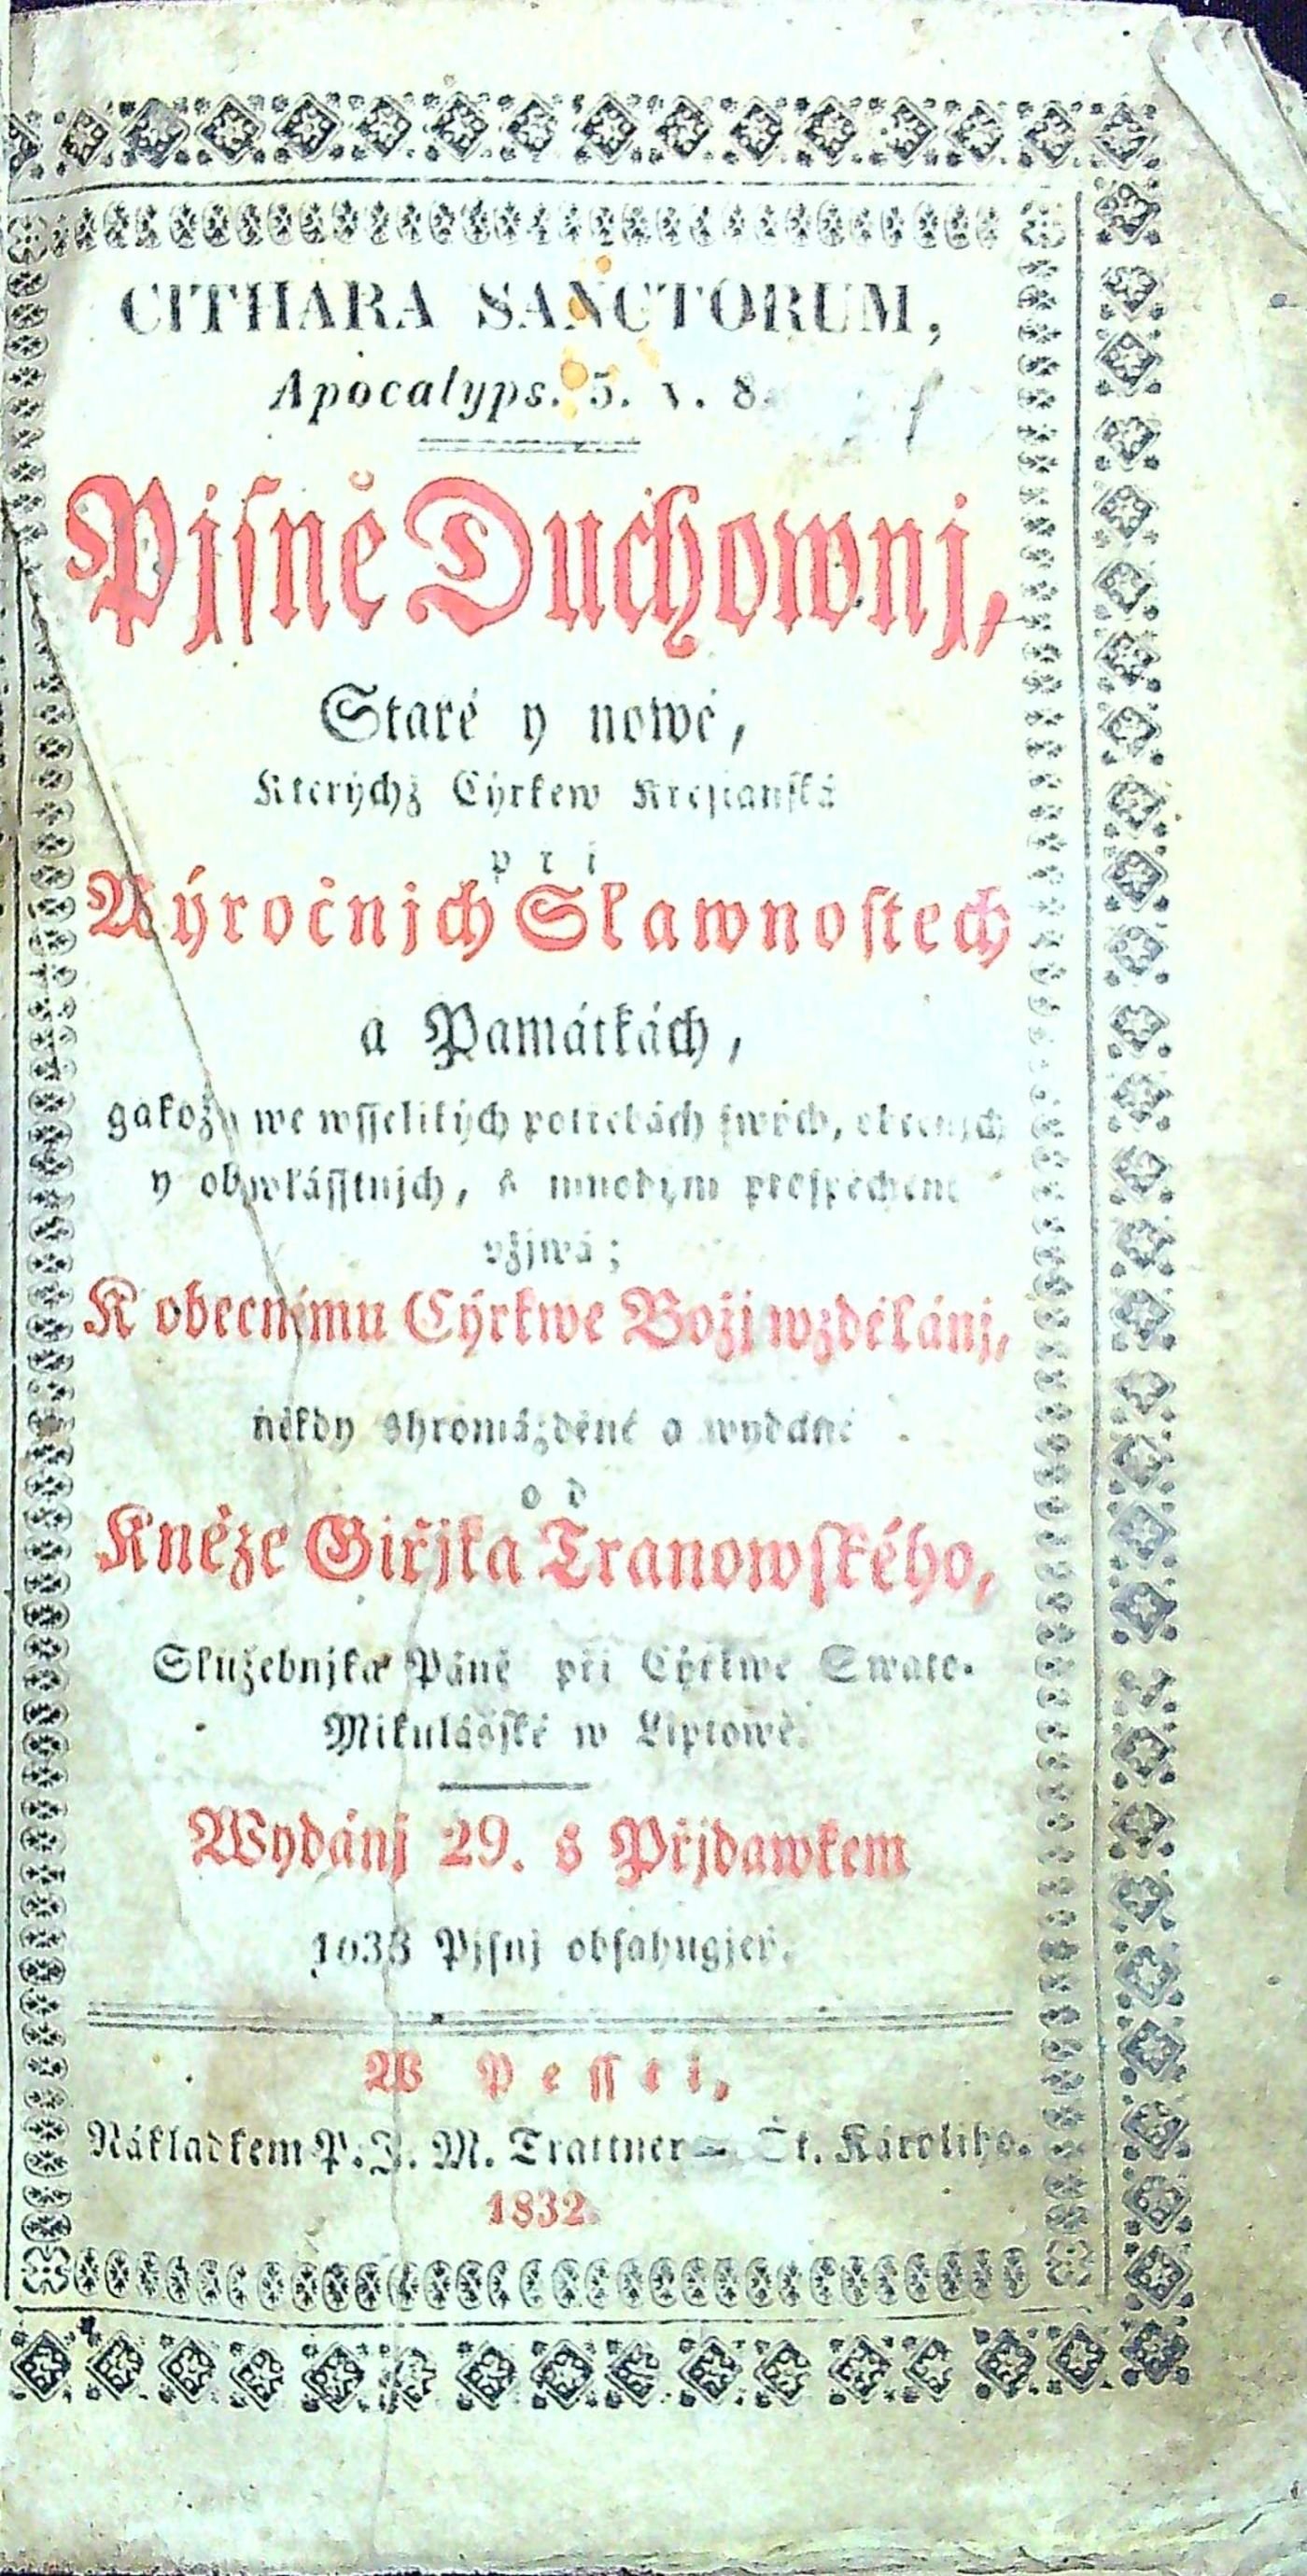 CITHARA SANCTORUM,
Apocalyps. 5. v. 8.
Pjsně Duchownj,
Staré y nowé,
Kterýchž Cýrkew Křestianská
při
Výročnjch Slawnostech
a Památkách,
gakož y we wsselikých potřebách swých, obecnjch
y obzwlásstnjch, s mnohým prospěchem
vžjwá;
K obecnímu Cýrkwe Božj wzdělánj,
někdy shromážděné a wydané
od
Kněze Giřjka Tranowského,
Služebnjka Páně při Cýrkwe Swato-
Mikulášské w Liptowě.
Wydánj 29. s Přjdawkem
Pjsnj obsahugjcý.
W Pessti,
Nákladkem P. J. M. Trattner- Št. Károliho.
1832.